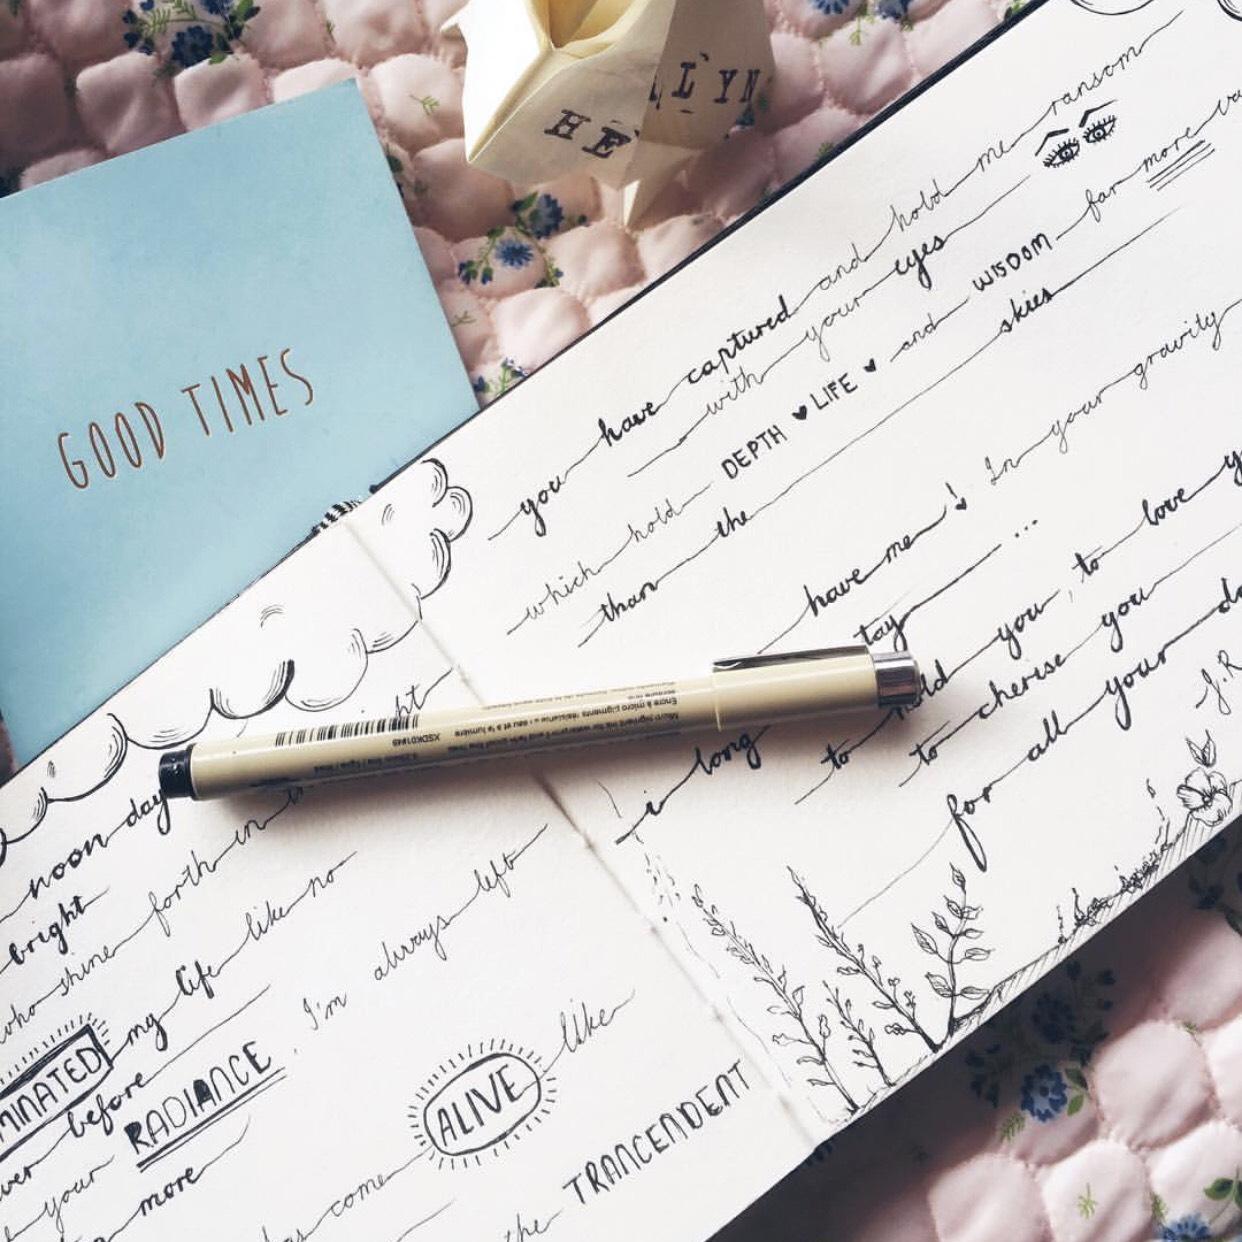 HE LLYN
GOOD TIMES
you have captured and hold me ransom
with your eyes
which hold DEPTH LIFE and WISDOM far more
than the skies
have me! In your gravity
tay...
i long to ld you, to love
to cherise you
for all your
J.R
XSDK01#49
Encre à micro pigments
ht
noon day
bright
who shine forth in
MINATED my life like no
ver before
your RADIANCE. I'm always left
more
as come ALIVE like
the TRANCENDENT